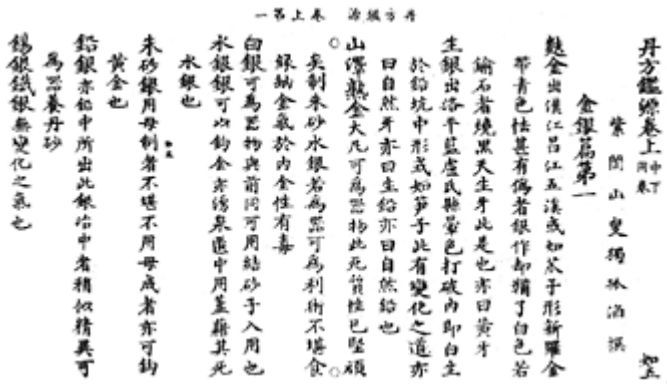 丹方鑑源 卷上第一
丹方鑑源卷上 中下同卷 如五
紫閣山叟獨孤滔撰
金銀篇第一
麩金出漢江昌江五溪或如茶子形新羅金
帶青色怯甚有偽者銀作却猶了白色若
鍮石者燒黑天生牙此是也亦曰黃牙
生銀出洛平藍盧氏縣暈色打破內即白生
於鉛坑中形或如笋子此有變化之道亦
曰自然牙亦曰生鉛亦曰自然鉛也
山澤熟金大凡可為器物此死質性已堅頑
矣制朱砂水銀若為器可為利術不堪食
緣納金氣於內金性有毒
白銀可為器物與前同可用結砂子入用也
水銀銀可以鈎金亦偽泉匱中用蓋藉其死
水銀也
朱砂銀用母制者不堪不用母成者亦可鈎
如五
黃金也
鉛銀亦鉛中所出此銀冶中者稍似精異可
為器養丹砂
錫銀鐵銀無變化之氣也